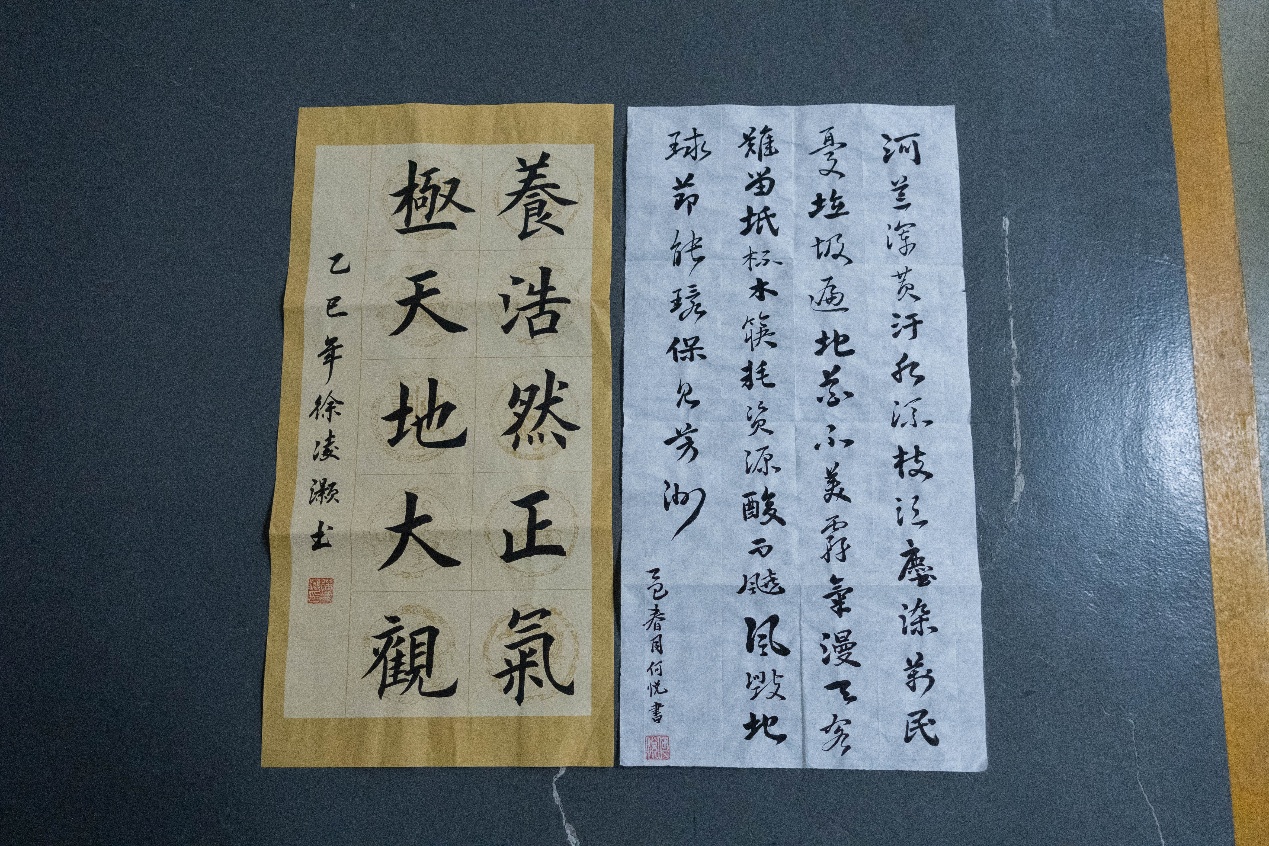 養浩然正氣
極天地大觀
乙巳年徐凌灏书
河兰深黄汙水流枝江塵染萬民
憂垃圾遍地花不美霧氣漫天客
難留紙杯木筷耗资源酸雨飓風毁地
球節能環保见芳洲
乙巳春月何悦書